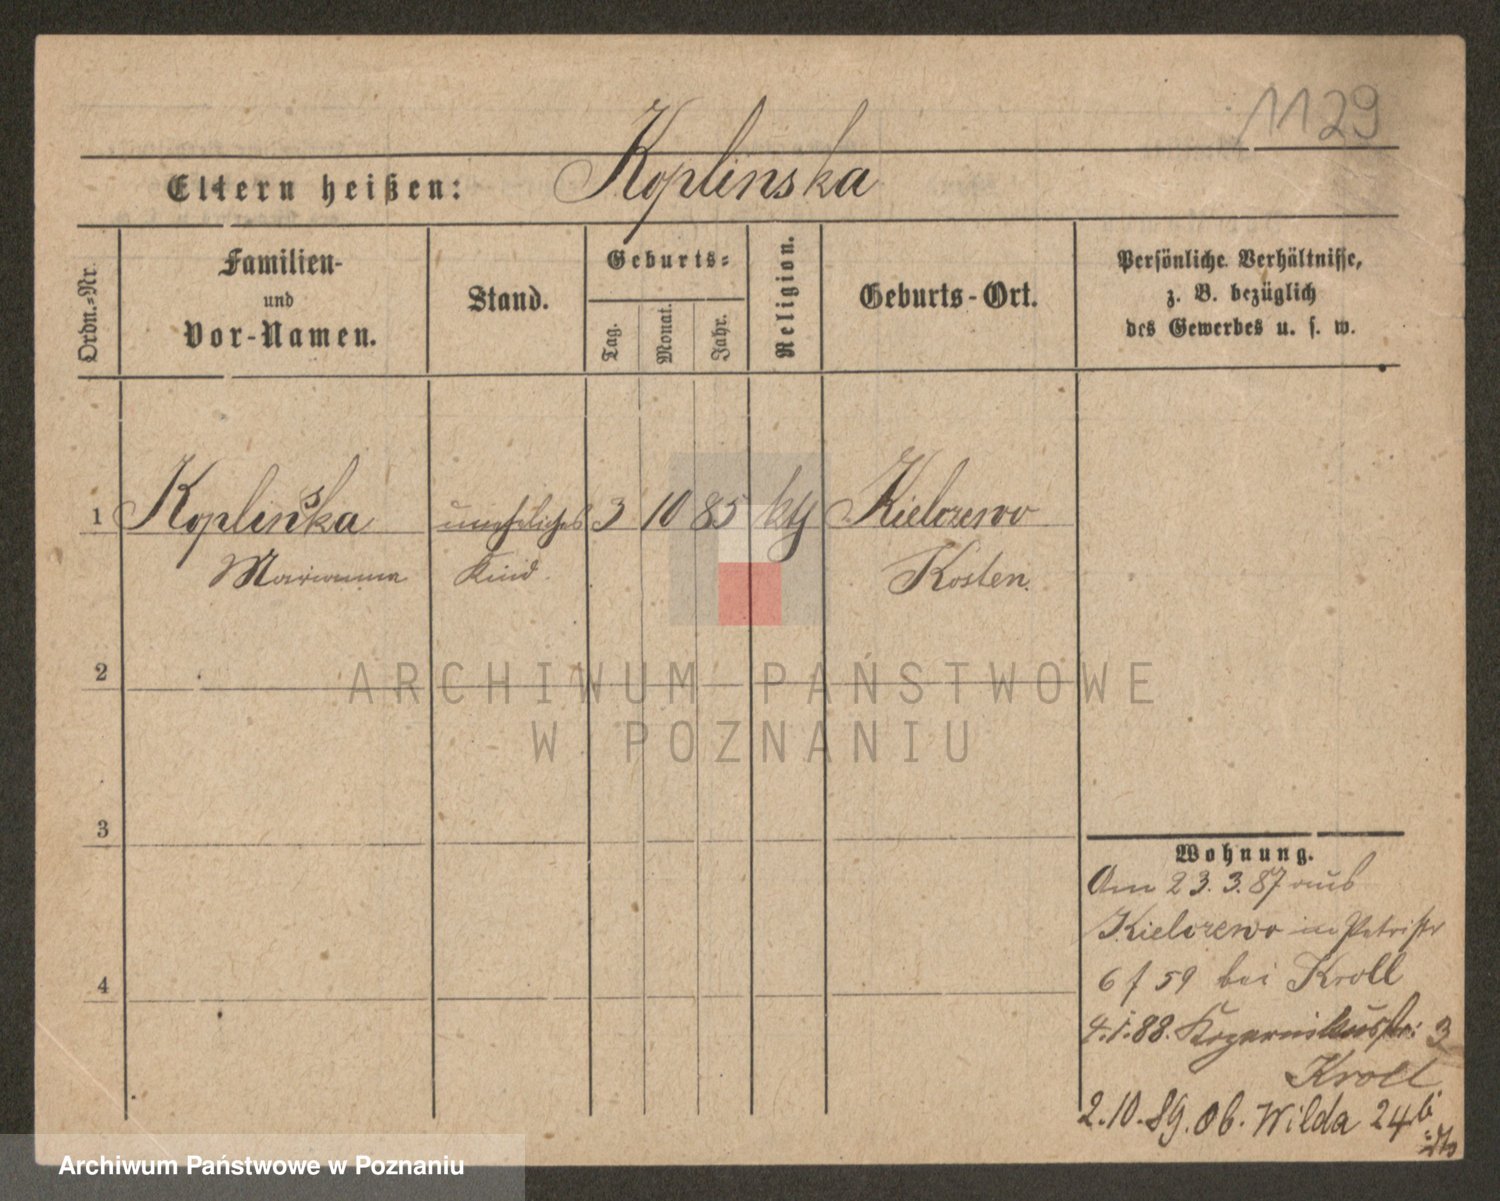 1129
Eltern heißen: Koplinska
Ordn.-Nr.
Familien-
und
Vor-Namen.
Stand.
Geburts-
Tag.
Monat.
Jahr.
Religion.
Geburts-Ort.
Persönliche Verhältnisse,
z. B. bezüglich
des Gewerbes u. s. w.
1 Koplinska unehliches 3 10 85 Kielczewo
Marianna Kind. Kosten.
2
3
4
Wohnung.
Am 23.3.87 aus
Kielczewo in Petristr
6 f 59 bei Kroll
4.1.88. 3
Kroll
2.10.89. Ob. Wilda 24 b
ARCHIWUM PAŃSTWOWE
W POZNANIU
Archiwum Państwowe w Poznaniu